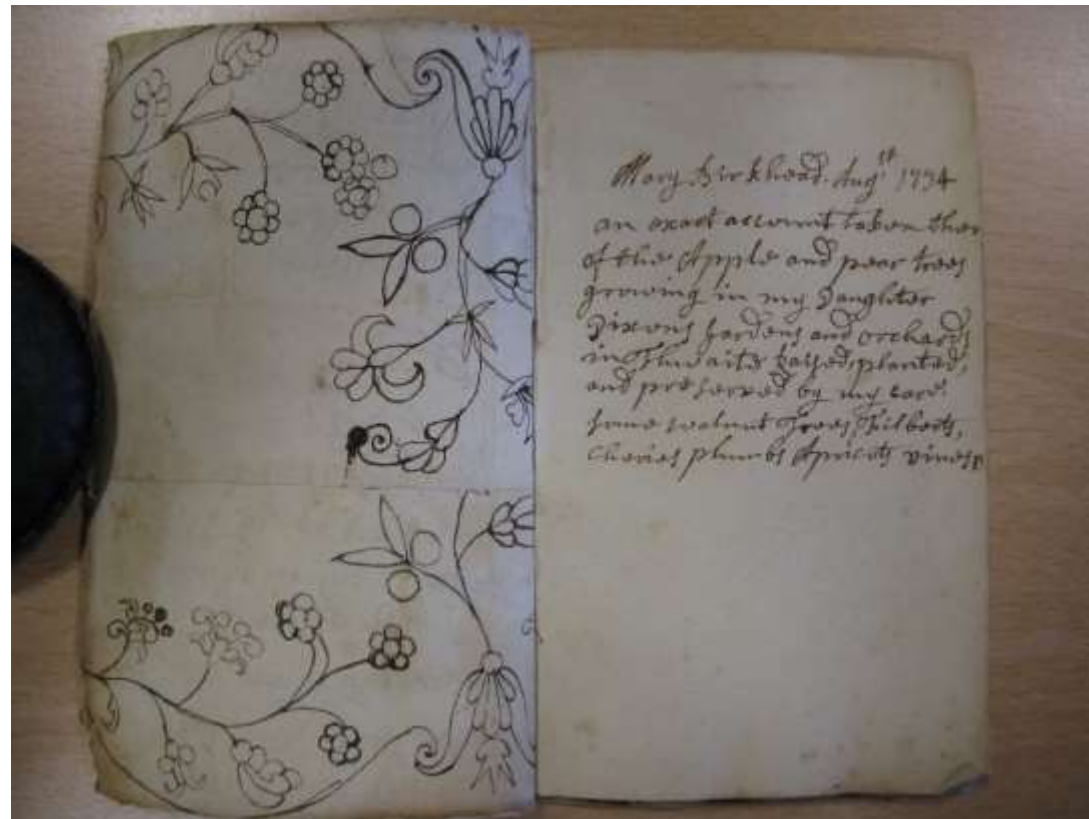 Mary Birkhead. Augst 1734
an exact account taken then
of the Apple and pear trees
growing in my Daughter
Dixons Gardens and orchards
in Thwaite Raised, planted,
and preserved by my care.
some walnut Trees, Filberts,
Cheries plumbs Apricots vines